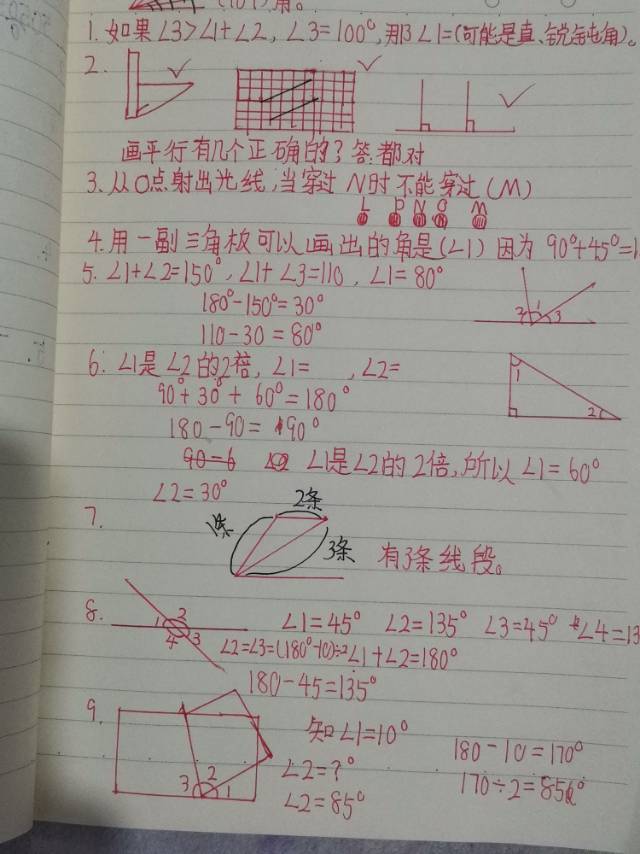 1.如果∠3>∠1+∠2,∠3=100°,那∠1=(可能是直、锐、钝角)。
2.
画平行有几个正确的?答:都对
3.从O点射出光线,当穿过N时不能穿过(M)
L P N O M
4.用一副三角板可以画出的角是(∠1)因为90°+45°=1
5.∠1+∠2=150°,∠1+∠3=110,∠1=80°
180°-150°=30°
110-30=80°
2 1 3
6.∠1是∠2的2倍,∠1= ,∠2=
90°+30°+60°=180°
1
180-90=90°
2
90=6 ∠1是∠2的2倍,所以∠1=60°
∠2=30°
7.
2条
1条
3条
有3条线段。
8.
1 2 3 4
∠1=45° ∠2=135° ∠3=45° ∠4=13
∠2=∠3=(180°-10)÷2 ∠1+∠2=180°
180-45=135°
9.
知∠1=10°
180-10=170°
3 2 1
∠2=?°
170÷2=85°
∠2=85°